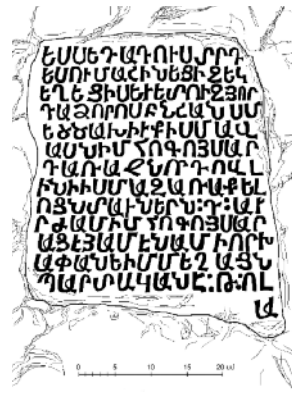 ԵՍՍԵԴԱԴՈՒՍՏՐԴ
ԵՍՈՒՄԱՀԻՆԵՑԻԶԵԿ
ԵՂԵՑԻՍԵՒԵՏՈՒԶՅՈՐ
ԴԱՁՈՐՈՍԲՆՀԱՆՍՄ
ԱՍՆԻՄՀՈԳՈՅՍԱՐ
ԴԱՌԱՔՆՈՐԴՈՎԼ
ԻՆԻԻՍՄԱԶԱՌԱՔԵԼ
ՈՑՆՄԱՒՆԵՐՆ:Դ:ԱՒ
ՐԺԱՄԻՄՀՈԳՈՅՍԱՐ
ԱՅԷՅԱՄԷՆԱՄԻՈՐԽ
ԱՓԱՆԵԻՄՄԵՂԱՅՆ
ՊԱՐՏԱԿԱՆԷ:Թ:ՈԼ
Ա
0 5 10 15 20 սմ